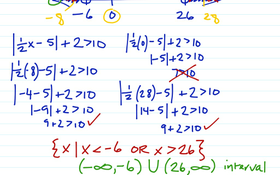 -8 -6 0 26 28
|1/2 x - 5| + 2 > 10
|1/2 (0) - 5| + 2 > 10
|-5| + 2 > 10
7 > 10
|1/2 (-8) - 5| + 2 > 10
|-4 - 5| + 2 > 10
|-9| + 2 > 10
9 + 2 > 10 ✓
|1/2 (28) - 5| + 2 > 10
|14 - 5| + 2 > 10
9 + 2 > 10 ✓
{x | x < -6 OR x > 26}
(-∞, -6) ∪ (26, ∞) interval